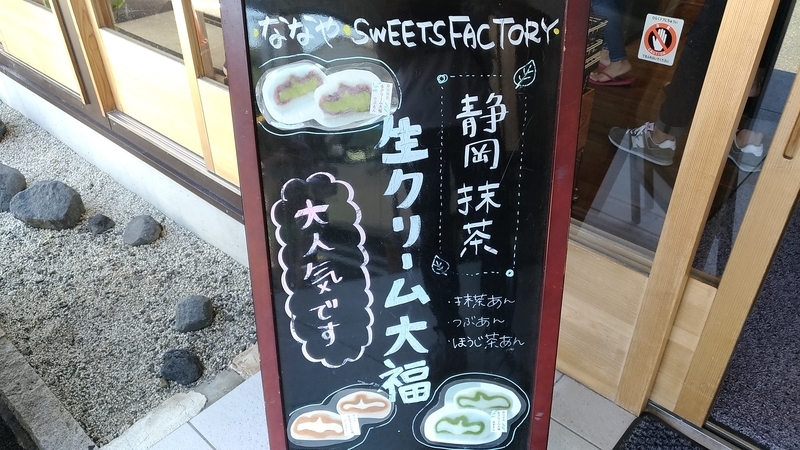 ななや・SWEETS FACTORY
静岡抹茶
生クリーム大福
大人気です
・抹茶あん
・つぶあん
・ほうじ茶あん